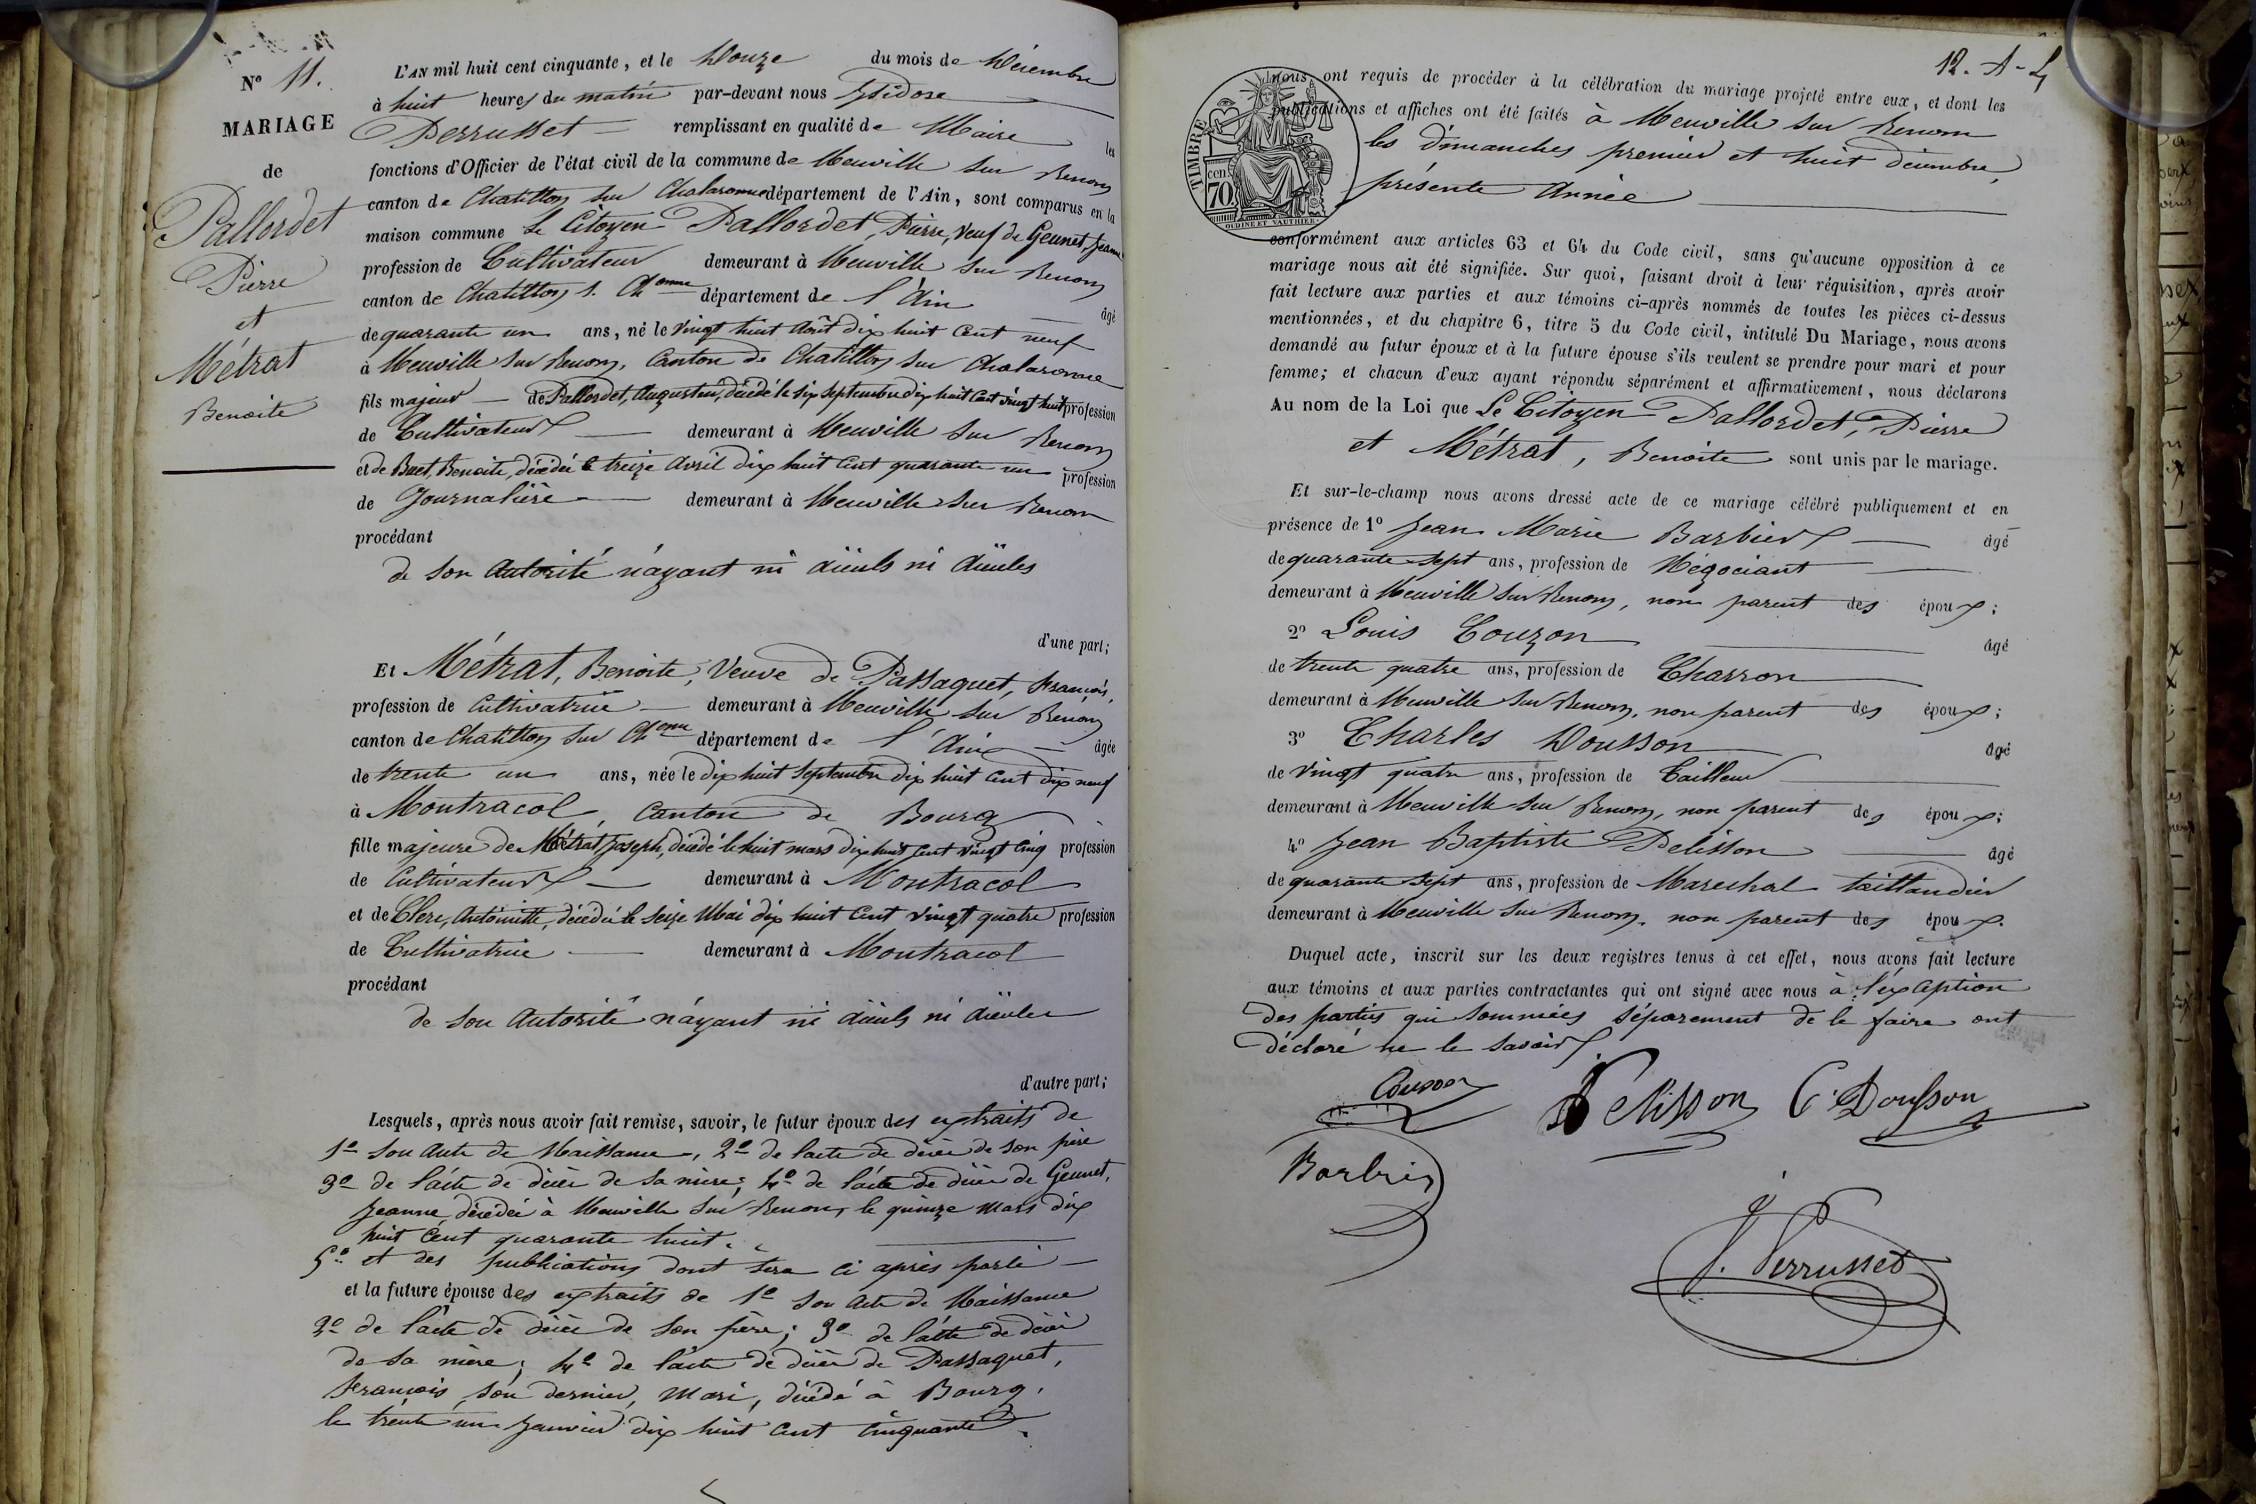 N.o 11.
MARIAGE
de
Pallordet
Pierre
et
Métrat
Benoite
L'AN mil huit cent cinquante, et le Douze du mois de Décembre
à huit heures du matin par-devant nous Isidore
Perrusset remplissant en qualité de Maire les
fonctions d'Officier de l'état civil de la commune de Neuville sur Renon
canton de Chatillon sur Chalaronne département de l'Ain, sont comparus en la
maison commune Le Citoyen Pallordet, Pierre, veuf de Geunet, Jeanne
profession de Cultivateur demeurant à Neuville sur Renon
canton de Chatillon s. Chonne département de l'Ain âgé
de quarante un ans, né le vingt huit Août dix huit cent neuf
à Neuville sur Renon, Canton de Chatillon sur Chalaronne
fils majeur de Pallordet, Augustin, décédé le six septembre dix huit cent vingt huit profession
de Cultivateur demeurant à Neuville sur Renon
et de Buet, Benoite, décédée le treize avril dix huit cent quarante un profession
de Journalière demeurant à Neuville sur Renon
procédant
de son Autorité n'ayant ni aïeuls ni Aïeules
d'une part;
Et Métrat, Benoite, Veuve de Passaquet, François,
profession de Cultivatrice demeurant à Neuville sur Renon
canton de Chatillon sur Chonne département de l'Ain âgée
de trente un ans, née le dix huit septembre dix huit cent dix neuf
à Montracol, Canton de Bourg
fille majeure de Métrat Joseph, décédé le huit mars dix huit cent vingt cinq profession
de Cultivateur demeurant à Montracol
et de Clerc, Antoinette, décédée le seize Mai dix huit cent vingt quatre profession
de Cultivatrice demeurant à Montracol
procédant
de son Autorité n'ayant ni aïeuls ni aïeules
d'autre part;
Lesquels, après nous avoir fait remise, savoir, le futur époux des extraits de
1o son acte de Naissance, 2o de l'acte de décès de son père
3o de l'acte de décès de sa mère; 4o de l'acte de décès de Geunet,
Jeanne décédée à Neuville sur Renon, le quinze Mars dix
huit cent quarante huit.
5o et des publications dont sera ci après parlé
et la future épouse des extraits de 1o son acte de Naissance
2o de l'acte de décès de son père; 3o de l'acte de décès
de sa mère; 4o de l'acte de décès de Passaquet,
François, son dernier mari, décédé à Bourg,
le trente un Janvier dix huit cent cinquante.
12. A-L
TIMBRE
cen.
70
OUDINE ET VAUTHIER
nous ont requis de procéder à la célébration du mariage projeté entre eux, et dont les
publications et affiches ont été faites à Neuville sur Renon
les dimanches premier et huit décembre,
présente Année
conformément aux articles 63 et 64 du Code civil, sans qu'aucune opposition à ce
mariage nous ait été signifiée. Sur quoi, faisant droit à leur réquisition, après avoir
fait lecture aux parties et aux témoins ci-après nommés de toutes les pièces ci-dessus
mentionnées, et du chapitre 6, titre 5 du Code civil, intitulé Du Mariage, nous avons
demandé au futur époux et à la future épouse s'ils veulent se prendre pour mari et pour
femme; et chacun d'eux ayant répondu séparément et affirmativement, nous déclarons
Au nom de la Loi que Le Citoyen Pallordet, Pierre
et Métrat, Benoite sont unis par le mariage.
Et sur-le-champ nous avons dressé acte de ce mariage célébré publiquement et en
présence de 1o Jean Marie Barbier âgé
de quarante sept ans, profession de Négociant
demeurant à Neuville sur Renon, non parent des époux;
2o Louis Couzon âgé
de trente quatre ans, profession de Charron
demeurant à Neuville sur Renon, non parent des époux;
3o Charles Dousson âgé
de vingt quatre ans, profession de Tailleur
demeurant à Neuville sur Renon, non parent des époux;
4o Jean Baptiste Pelisson âgé
de quarante sept ans, profession de Marechal taillandier
demeurant à Neuville sur Renon, non parent des époux.
Duquel acte, inscrit sur les deux registres tenus à cet effet, nous avons fait lecture
aux témoins et aux parties contractantes qui ont signé avec nous à l'exception
des parties qui sommées séparement de le faire ont
déclaré ne le savoir
Couzon Pelisson C. Dousson
Barbier
J. Perrusset